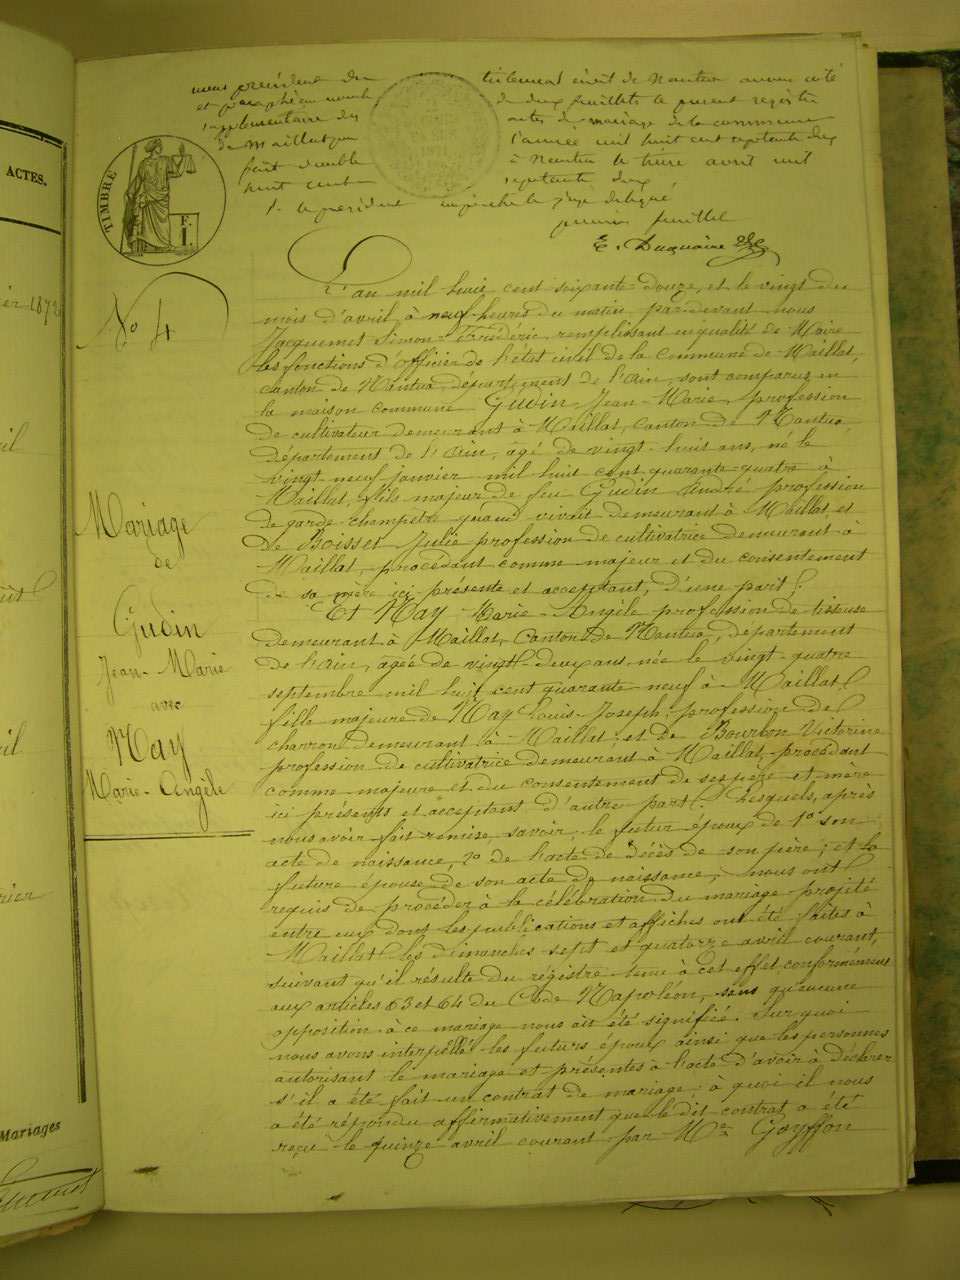 ACTES.
ier 1872
Mariages
nous président du tribunal civil de Nantua avons coté
et paraphé au nombre de deux feuillets le présent registre
supplémentaire des actes de mariage de la commune
de Maillat pour l'année mil huit cent septante deux
fait double à Nantua le treize avril mil
huit cent septante deux
P. le président empêché le juge délégué
premier feuillet
E. Duquaire
TIMBRE
F. I.
No 4
Mariage
de
Gudin
Jean-Marie
avec
Nay
Marie-Angèle
L'an mil huit cent soixante-douze, et le vingt du
mois d'avril, à neuf heures du matin, par-devant nous
Jacquemet Simon-Frédéric, remplissant en qualité de Maire
les fonctions d'officier de l'état civil de la Commune de Maillat,
canton de Nantua, département de l'ain, sont comparus en
la maison commune Gudin Jean-Marie, profession
de cultivateur demeurant à Maillat, canton de Nantua
département de l'Ain, âgé de vingt-huit ans, né le
vingt-neuf janvier mil huit cent quarante-quatre à
Maillat, fils majeur de feu Gudin André profession
de garde-champetre quand vivait demeurant à Maillat et
de Boisset Julie profession de cultivatrice demeurant à
Maillat, procédant comme majeur et du consentement
de sa mère ici présente et acceptant, d'une part.
Et Nay Marie-Angèle profession de tisseuse
demeurant à Maillat, Canton de Nantua, département
de l'ain, agée de vingt-deux ans, née le vingt-quatre
septembre mil huit cent quarante neuf à Maillat
fille majeure de Nay Louis-Joseph, profession de
charron demeurant à Maillat, et de Bourbon Victorine
profession de cultivatrice demeurant à Maillat, procédant
comme majeure et du consentement de ses père et mère
ici présents et acceptant d'autre part. Lesquels, après
nous avoir fait remise, savoir, le futur époux de 1o son
acte de naissance, 2o de l'acte de décès de son père; et la
future épouse de son acte de naissance; nous ont
requis de procéder à la célébration du mariage projeté
entre eux dont les publications et affiches ont été faites à
Maillat les dimanches sept et quatorze avril courant,
suivant qu'il résulte du régistre tenu à cet effet conformément
aux articles 63 et 64 du Code Napoléon, sans qu'aucune
opposition à ce mariage nous ait été signifiée. Sur quoi
nous avons interpellé les futurs époux ainsi que les personnes
autorisant le mariage et présentes à l'acte d'avoir à déclarer
s'il a été fait un contrat de mariage; à quoi il nous
a été répondu affirmativement que le dit contrat a été
reçu le quinze avril courant par Me Goyffon